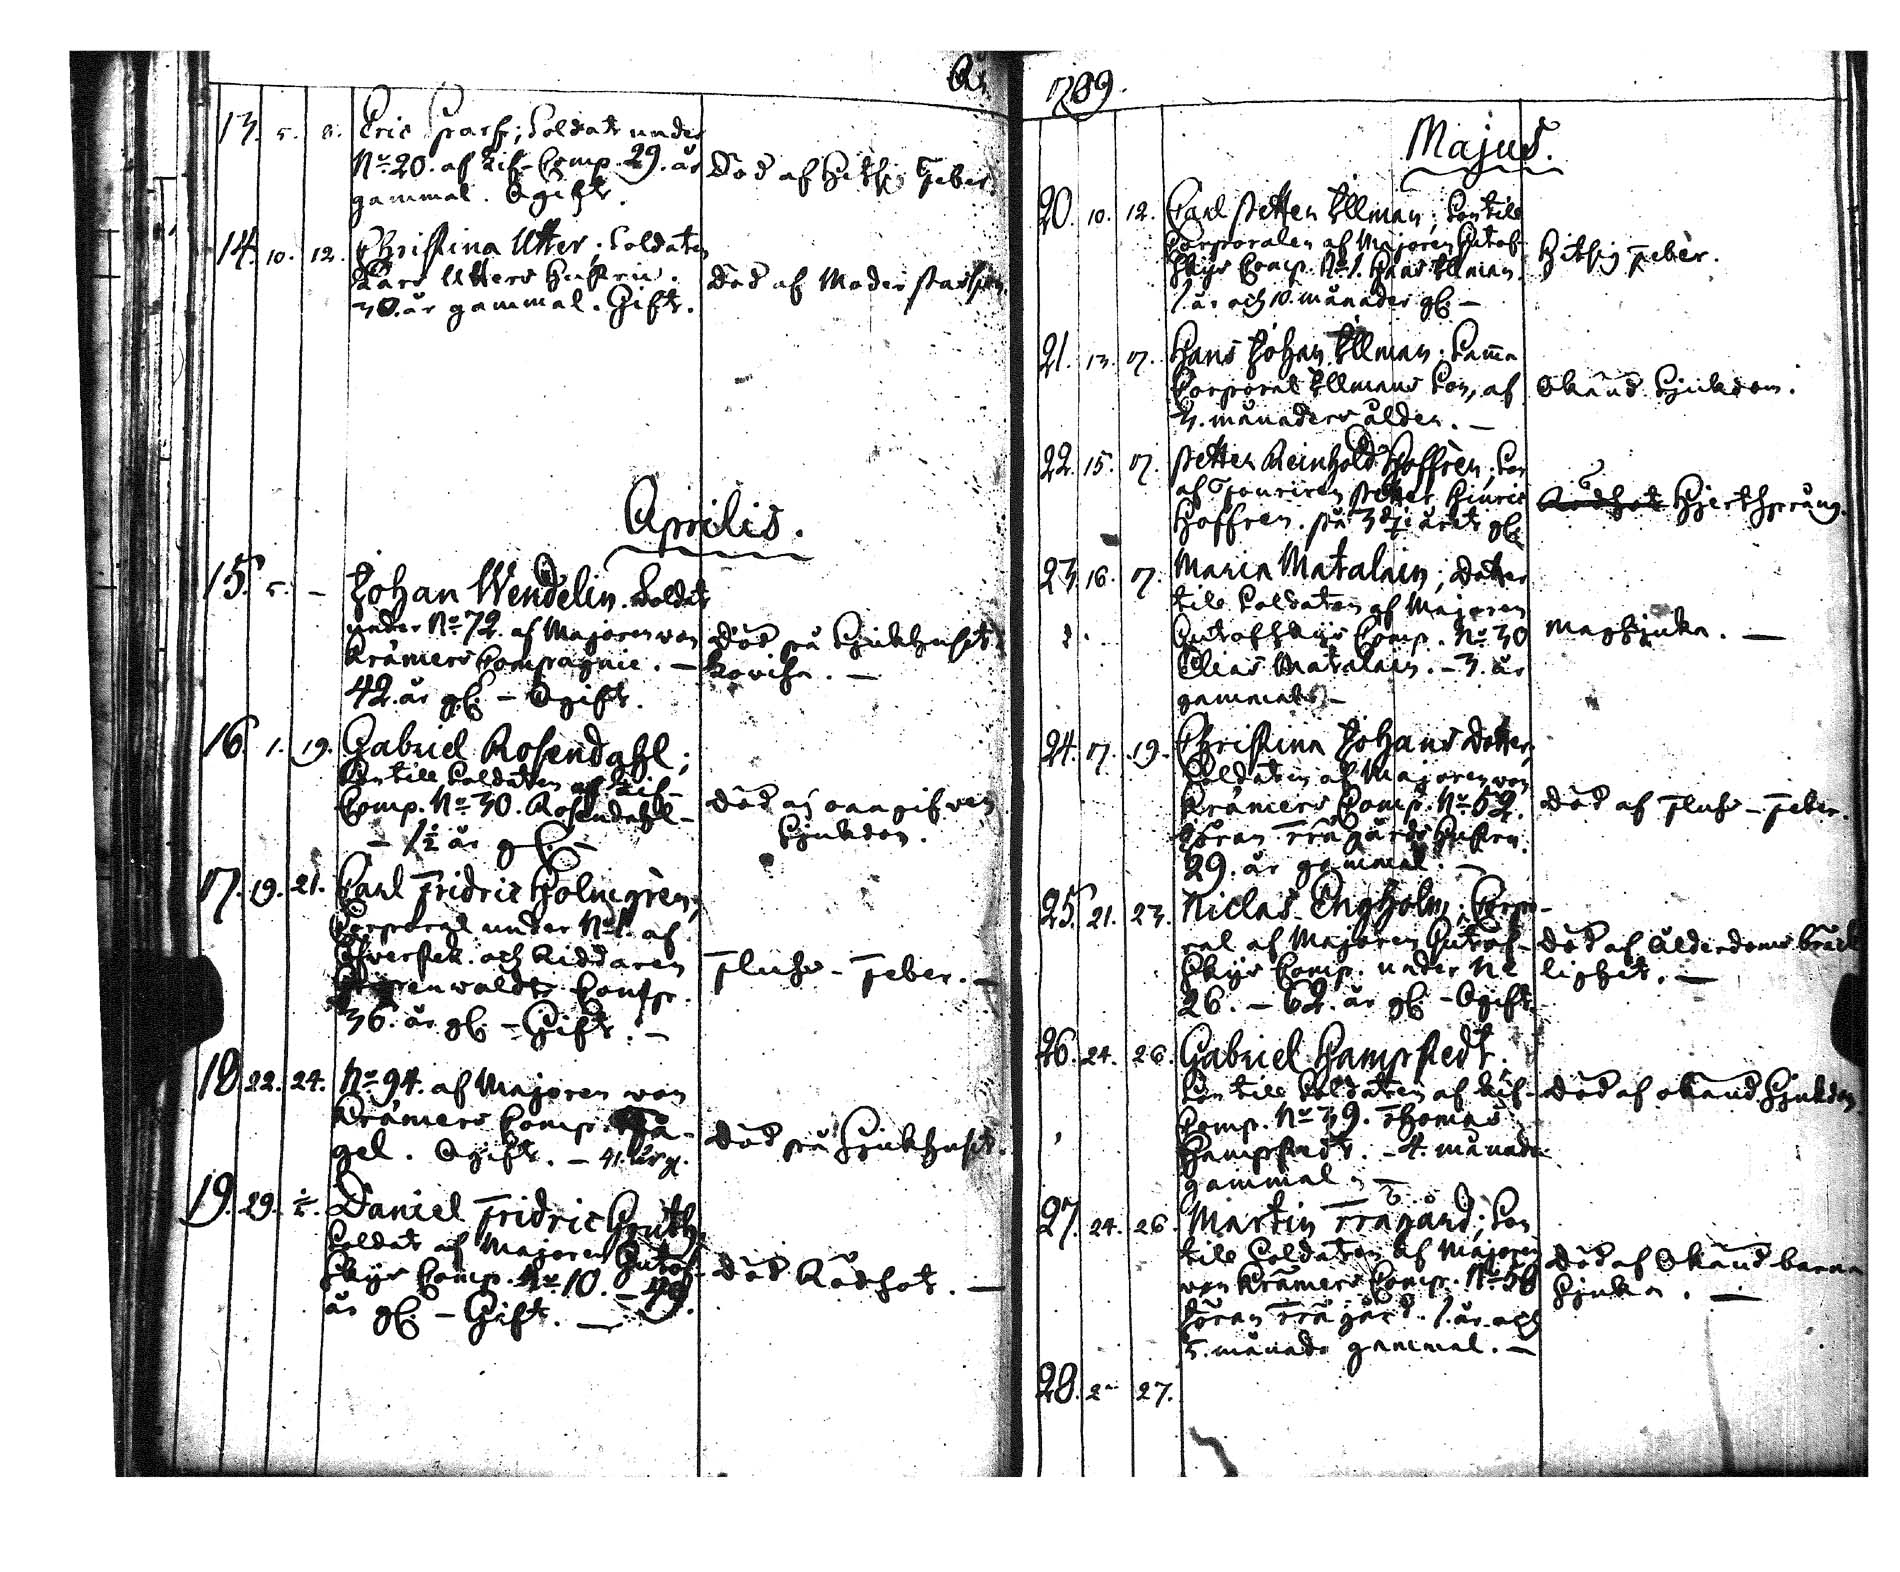 År
13. 5. 8. Eric Sparf; Soldat under
No 20. af Lif-Comp. 29. år
gammal. Ogift.
Död af Hitsig Feber.
14. 10. 12. Christina Utter; Soldaten
Lars Utters Hustru.
30. år gammal. Gift.
Död af Moder passion.
Aprilis.
15. 5. – Johan Wendelin. Soldat
under No 72. af Majoren von
Krämers Compagnie. –
42. år gl. – Ogift.
Död på Sjukhuset i
Lovisa. –
16. 1. 19. Gabriel Rosendahl;
Son till Soldaten af Lif-
Comp. No 30. Rosendahl –
– 1½ år gl. –
Död af oangifven
Sjukdom.
17. 19. 21. Carl Fridric Holmgrèn;
Corporal under No 1. af
Öfverstel. och Riddaren
Comp.
36. år gl. – Gift. –
Fluss-Feber. –
18. 22. 24. No 94. af Majoren von
Krämers Comp. Få-
gel. Ogift. – 41. år g.
Död på Sjukhuset.
19. 29. Daniel Fridric Gruth
Soldat af Majoren Gutof-
skys Comp. No 10. – 49.
år gl. – Gift. –
Död Rödsot. –
1789.
Majus.
20. 10. 12. Carl Petter Ellman; Son till
Corporalen af Majoren Gutof-
skys Comp. No 1. Hans Ellman.
1. år och 10. månader gl. –
Hitsig feber.
21. 13. 17. Hans Johan Ellman. Samma
Corporal Ellmans Son, af
3. månaders ålder. –
Okänd Sjukdom.
22. 15. 17. Petter Reinhold Hoffrèn; Son
af Fouriren Petter Hinric
Hoffren. på 3dje året gl.
Rödsot Hjertsprång.
23. 16. 17. Maria Matalain; Dotter
till Soldaten af Majoren
Gutofskys Comp. No 30
Elias Matalain. – 3. år
gammal –
Magsjuka. –
24. 17. 19. Christina Johans Dotter,
Soldaten af Majoren von
Krämers Comp. No 52.
Göran Trägårds Hustru.
29. år gammal. –
Död af Fluss-Feber.
25. 21. 23. Niclas Engholm; Corpo-
ral af Majoren Gutof-
skys Comp. under No
26. – 62. år gl. – Ogift.
Död af Ålderdoms bräck
lighet. –
26. 24. 26. Gabriel Hampstedt.
Son till Soldaten af Lif-
Comp. No 39. Thomas
Hampstedt. – 4. månader
gammal. –
Död af okänd Sjukdom
27. 24. 26. Martin Trägård; Son
till Soldaten af Majoren
von Krämers Comp. No 56
Göran Trägård. 1. år och
5. månader gammal. –
Död af Okänd barna
sjuka. –
28. 27.